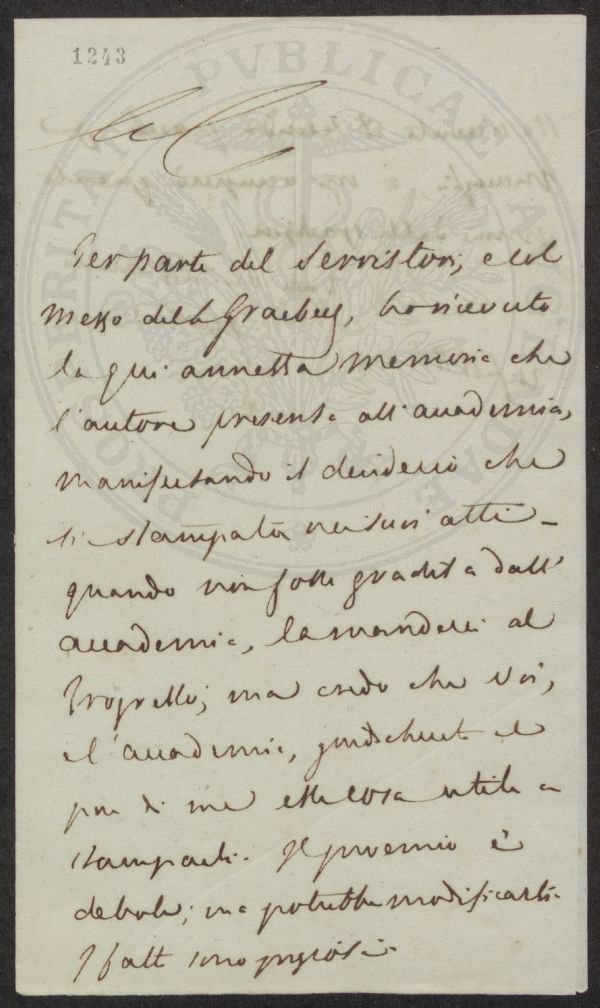 1243
PVBLICAE
PROSPERITATIS
Per parte del Serristori, e col
mezzo della Graeberg, ho ricevuto
la qui annessa memoria che
l'autore presenta all'accademia,
manifestando il desiderio che
sia stampata nei suoi atti –
quando non fosse gradita dall'
accademia, la manderei al
Progresso; ma credo che voi,
e l'accademia, giudicherete al
pari di me esser cosa utile a
stamparsi. Il proemio è
debole; ma potrebbe modificarsi.
I fatti sono preziosi.